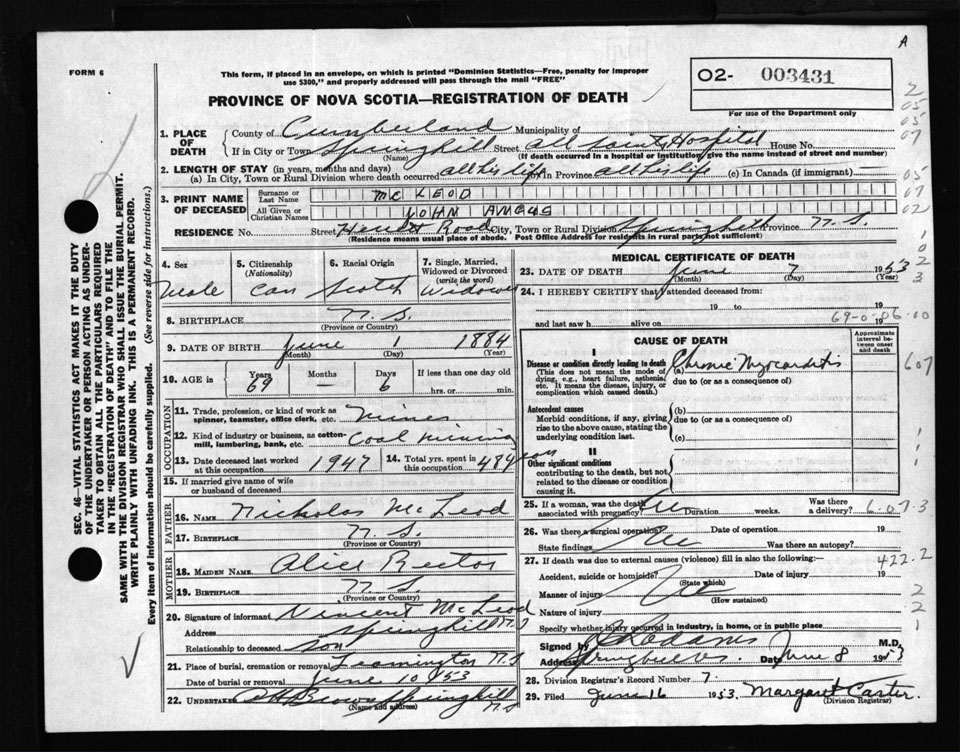 A
FORM 6
This form, if placed in an envelope, on which is printed "Dominion Statistics—Free, penalty for improper
use $300," and properly addressed will pass through the mail "FREE"
02- 003431
For use of the Department only
PROVINCE OF NOVA SCOTIA—REGISTRATION OF DEATH
1. PLACE OF DEATH
County of Cumberland Municipality of
If in City or Town Springhill Street All Saints Hospital House No.
(Name) (If death occurred in a hospital or institution, give the name instead of street and number)
2. LENGTH OF STAY (in years, months and days)
(a) In City, Town or Rural Division where death occurred all his life (b) In Province all his life (c) In Canada (if immigrant)
3. PRINT NAME OF DECEASED
Surname or Last Name MC LEOD
All Given or Christian Names JOHN ANGUS
RESIDENCE No. Street Road City, Town or Rural Division Springhill Province N.S.
(Residence means usual place of abode. Post Office Address for residents in rural parts not sufficient)
4. Sex Male
5. Citizenship (Nationality) Can
6. Racial Origin Scotch
7. Single, Married, Widowed or Divorced (write the word) Widower
8. BIRTHPLACE N.S.
(Province or Country)
9. DATE OF BIRTH June 1 1884
(Month) (Day) (Year)
10. AGE in Years 69 Months – Days 6 If less than one day old hrs. or min.
OCCUPATION
11. Trade, profession, or kind of work as spinner, teamster, office clerk, etc. Miner
12. Kind of industry or business, as cotton-mill, lumbering, bank, etc. Coal Mining
13. Date deceased last worked at this occupation 1947
14. Total yrs. spent in this occupation 48 years
15. If married give name of wife or husband of deceased
FATHER
16. NAME Nicholas McLeod
17. BIRTHPLACE N.S
(Province or Country)
MOTHER
18. MAIDEN NAME Alice Rector
19. BIRTHPLACE N.S.
(Province or Country)
20. Signature of informant Vincent McLeod
Address Springhill N.S
Relationship to deceased son
21. Place of burial, cremation or removal Leamington N.S
Date of burial or removal June 10 1953
22. UNDERTAKER Brown Springhill N.S
(Name and address)
MEDICAL CERTIFICATE OF DEATH
23. DATE OF DEATH June 7 1953
(Month) (Day) (Year)
24. I HEREBY CERTIFY that I attended deceased from
19 to 19
and last saw h alive on 19
69-0-06.00
CAUSE OF DEATH
Approximate interval between onset and death
I
Disease or condition directly leading to death (a) Chronic Myocarditis
(This does not mean the mode of dying, e.g., heart failure, asthenia, etc. It means the disease, injury, or complication which caused death.)
due to (or as a consequence of)
Antecedent causes (b)
Morbid conditions, if any, giving rise to the above cause, stating the underlying condition last.
due to (or as a consequence of)
(c)
II
Other significant conditions
contributing to the death, but not related to the disease or condition causing it.
25. If a woman, was the death associated with pregnancy? Duration weeks. Was there a delivery?
26. Was there a surgical operation? Date of operation 19
State findings Was there an autopsy?
27. If death was due to external causes (violence) fill in also the following:-
Accident, suicide or homicide? Date of injury 19
(State which)
Manner of injury
(How sustained)
Nature of injury
Specify whether injury occurred in industry, in home, or in public place
Signed by Adams M.D.
Address Springhill N.S. Date June 8 1953
28. Division Registrar's Record Number 7.
29. Filed June 16 1953. Margaret Carter.
(Division Registrar)
2
05
05
07
05
07
02
607
6-07-3
422.2
SEC. 46—VITAL STATISTICS ACT MAKES IT THE DUTY
OF THE UNDERTAKER OR PERSON ACTING AS UNDER-
TAKER TO OBTAIN ALL THE PARTICULARS REQUIRED
IN THE "REGISTRATION OF DEATH" AND TO FILE THE
SAME WITH THE DIVISION REGISTRAR WHO SHALL ISSUE THE BURIAL PERMIT.
WRITE PLAINLY WITH UNFADING INK. THIS IS A PERMANENT RECORD.
Every item of information should be carefully supplied. (See reverse side for instructions.)